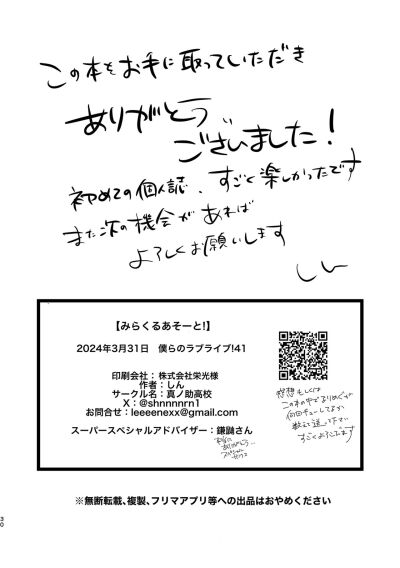 この本をお手に取っていただき
ありがとう
ございました!
初めての個人誌、すごく楽しかったです
また次の機会があれば
よろしくお願いします
しん
【みらくるあそーと!】
2024年3月31日 僕らのラブライブ!41
印刷会社:株式会社栄光様
作者:しん
サークル名:真ノ助高校
X:@shnnnnrn1
お問合せ:leeeenexx@gmail.com
スーパースペシャルアドバイザー:鎌鼬さん
本当に
ありがとう…
感想もしくは
この本の中でるりめぐが
何回チューしてるか
数えて送って下さい
すごくよろこびます
※無断転載、複製、フリマアプリ等への出品はおやめください
30